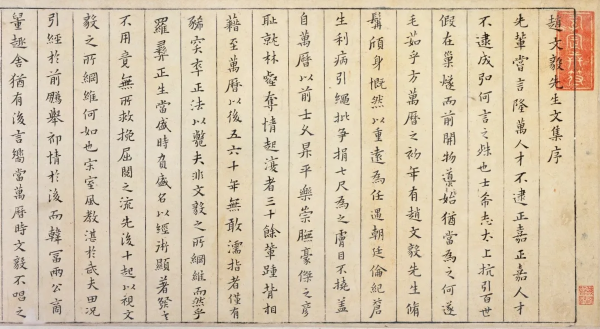 趙文毅先生文集序
先輩嘗言隆萬人才不逮正嘉正嘉人才
不逮成弘何言之殊也士希志太上抗引百世
假在巢燧而前開物導始猶當為之何遂
毛茹乎方萬曆之初年有趙文毅先生脩
鬚頎身慨然以重遠為任遇朝廷倫紀蒼
生利病引繩批爭捐七尺為之膚目不撓蓋
自萬曆以前士久昇平樂崇膴豪傑之彥
恥就林壑奪情起復者三十餘輩踵背相
藉至萬曆以後五六十年無敢濡指者僅有
豨突奉正法以斃夫非文毅之所綱維而然乎
羅彝正生當盛時負盛名以經術顯著發
不用竟無所救挽屈閣之流先後十起以視文
毅之所綱維何如也宗室風教湛於武夫田況
引經於前鵬舉祁情於後而韓富兩公商
量趣舍猶有後言嚮當萬曆時文毅不唱之